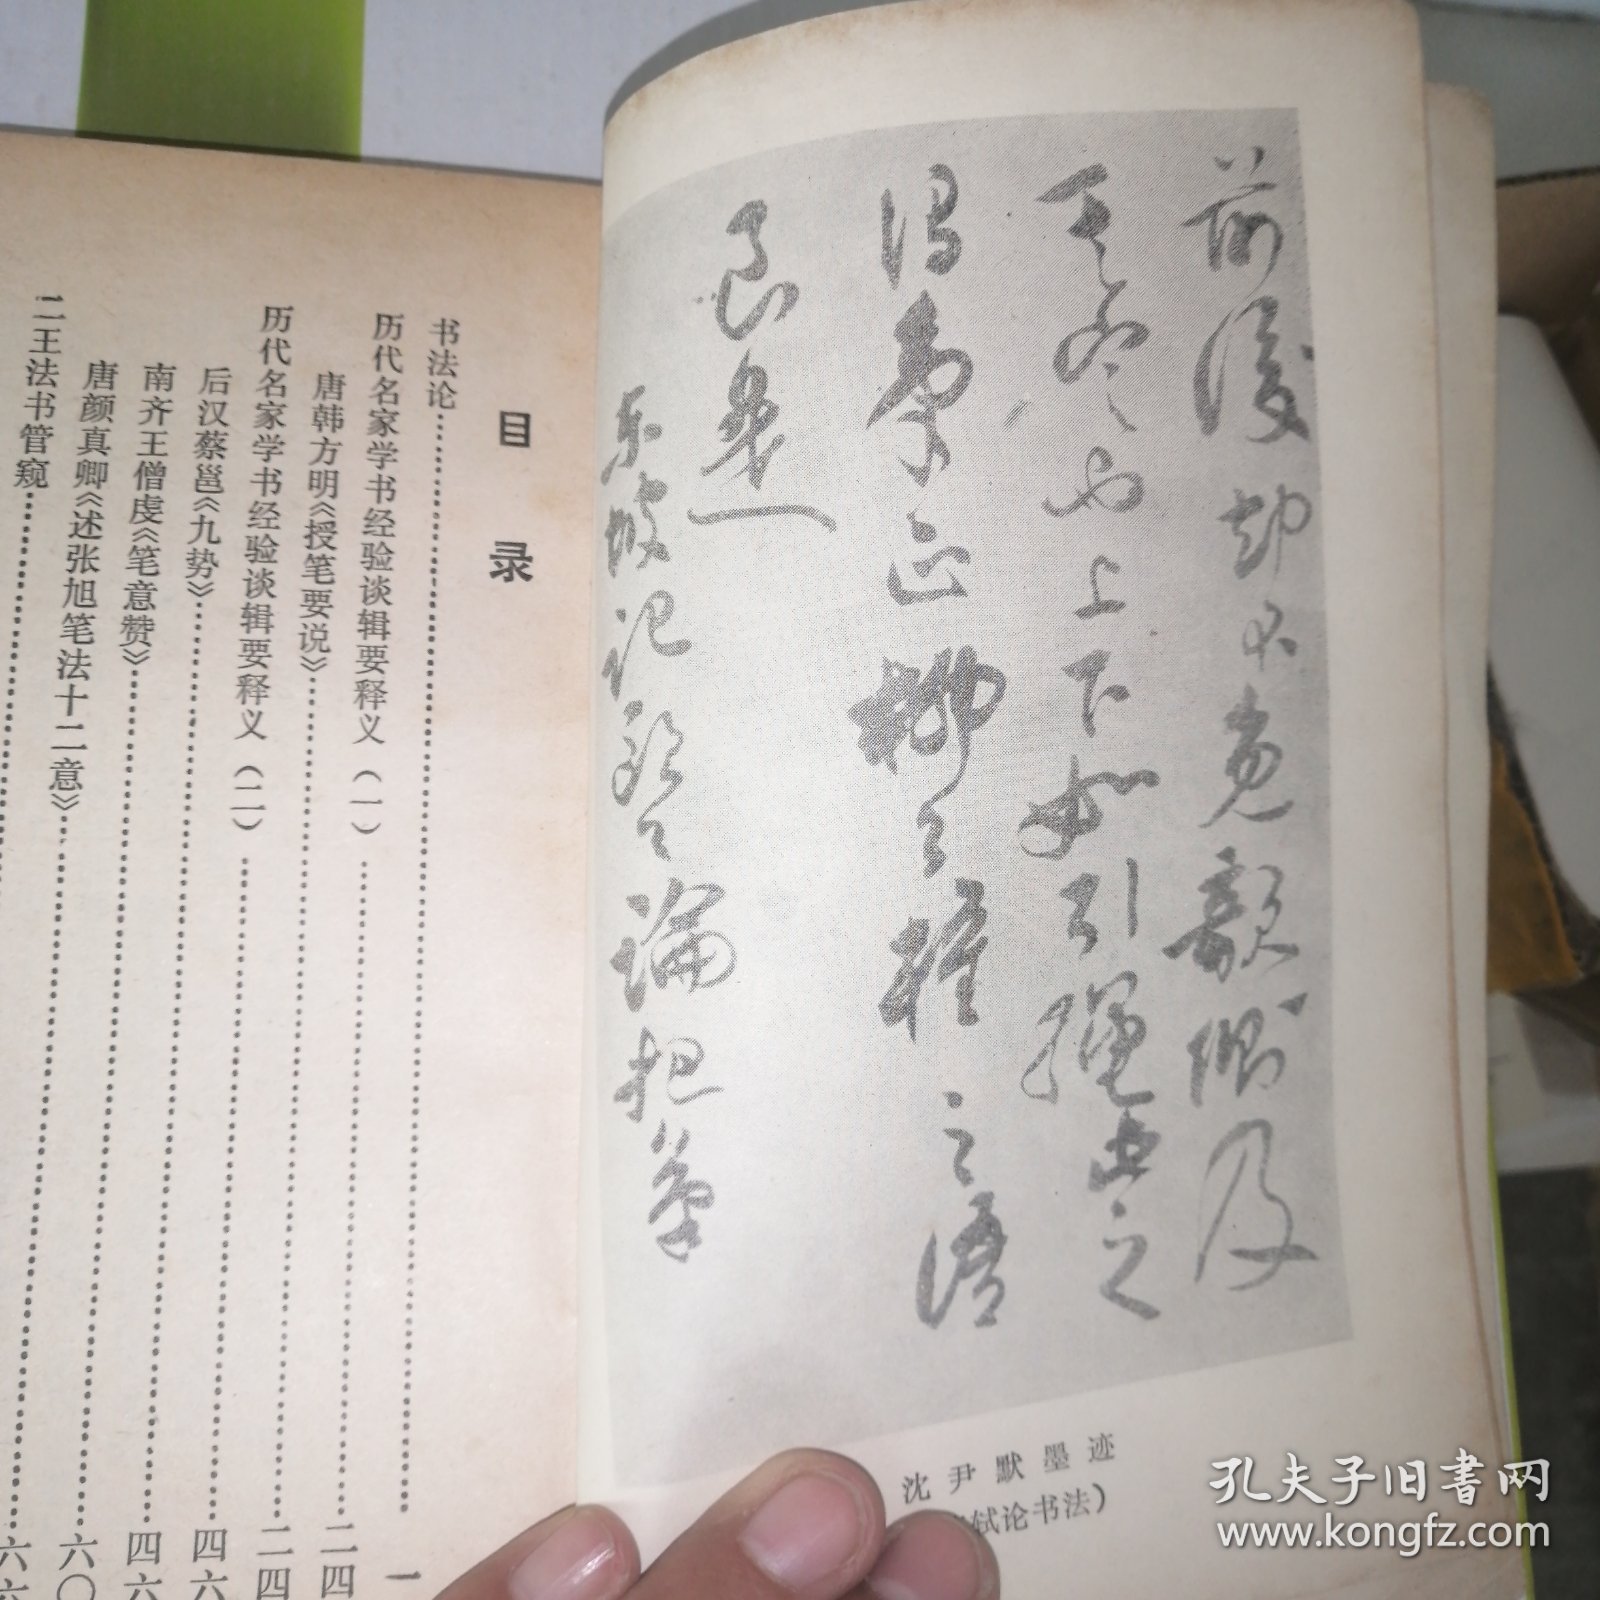 前後却不免欹側及
其定也上下如引繩此之
謂筆正柳公權之語
良是
東坡記歐公論把筆
沈尹默墨迹
轼论书法)
目录
书法论……一
历代名家学书经验谈辑要释义(一)……二四
唐韩方明《授笔要说》……二四
历代名家学书经验谈辑要释义(二)……四六
后汉蔡邕《九势》……四六
南齐王僧虔《笔意赞》……六〇
唐颜真卿《述张旭笔法十二意》……六六
二王法书管窥……
孔夫子旧书网
www.kongfz.com